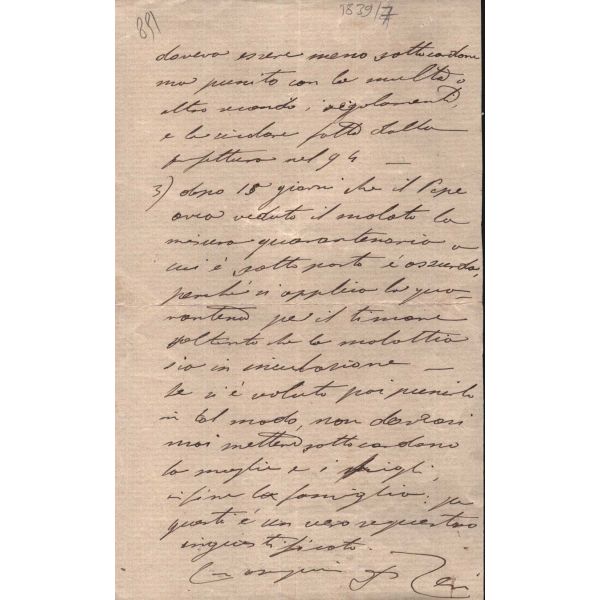 891 1839/7
doveva essere meno sotto cordone
ma punito con la multa o
altro secondo i regolamenti,
e la circolare fatta dalla
prefettura nel 94 —
3) dopo 15 giorni che il Pepe
avea veduto il malato la
misura quarantenaria a
cui è sottoposto è assurda,
perché si applica la qua-
rantena per il timore
soltanto che la malattia
sia in incubazione —
Se si è voluto poi punirlo
in tal modo, non dovrassi
mai mettere sotto cordone
la moglie e i figli,
infine la famiglia: per
questi è un vero sequestro
ingiustificato.